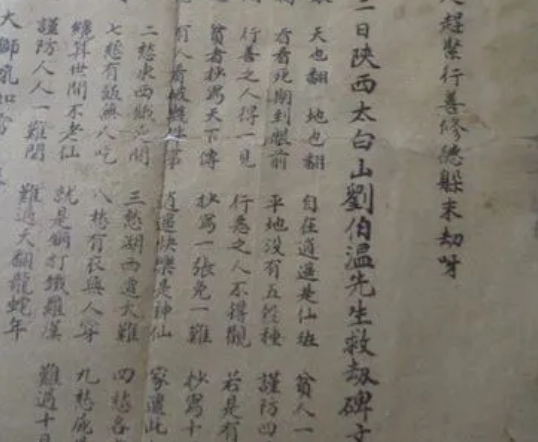 人趕緊行善修德躲末劫呀
日陝西太白山劉伯溫先生救劫碑文
天也翻 地也翻 自在逍遙是仙班 貧人一
看看死期到眼前 平地沒有五谷種 謹防四
行善之人得一見 行惡之人不得觀 若是有
貧者抄寫天下傳 抄寫一張免一難 抄寫十
有人看破 逍遙快樂是神仙 家遭此
二愁東西餓死間 三愁湖西遭大難 四愁各
七愁有飯無人吃 八愁有衣無人穿 九愁屍
縱算世間不老仙 就是銅打鐵羅漢 難過十
謹防人人一難關 難過天翻龍蛇年
大獅吼如雷